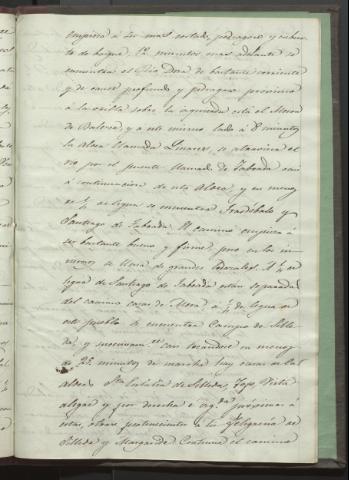 empieza á ser mas cortado, pedregoso y cubier-
to de bosque, 12 minutos mas adelante se
encuentra el Rio Deza de bastante corriente
y de cauce profundo y pedregoso próximo
á la orilla sobre la izquierda está el Meson
de y á este mismo lado á 8 minutos
la Aldea llamada Linares, se atraviesa el
rio por el puente llamado de Taboada casi
á continuacion de esta Aldea, y en menos
de ½ de legua se encuentra y
Santiago de Taboada. El camino empieza á
ser bastante bueno y firme, pero en los in-
viernos se llena de grandes lodazales. A ¼ de
legua de Santiago de Taboada estan separadas
del camino casas de Mera á ¼ de legua de
este pueblo se encuentra Campo de Sille-
da, y sucesivam.te casi tocandose en menos
de 25 minutos de marcha hay casas de las
aldeas S.ta Eulalia de Silleda, Foxo, Vista
alegre y por derecha é izq.da próximas á
estas, otras pertenecientes á la feligresia de
Silleda y Margaride. Continua el camino